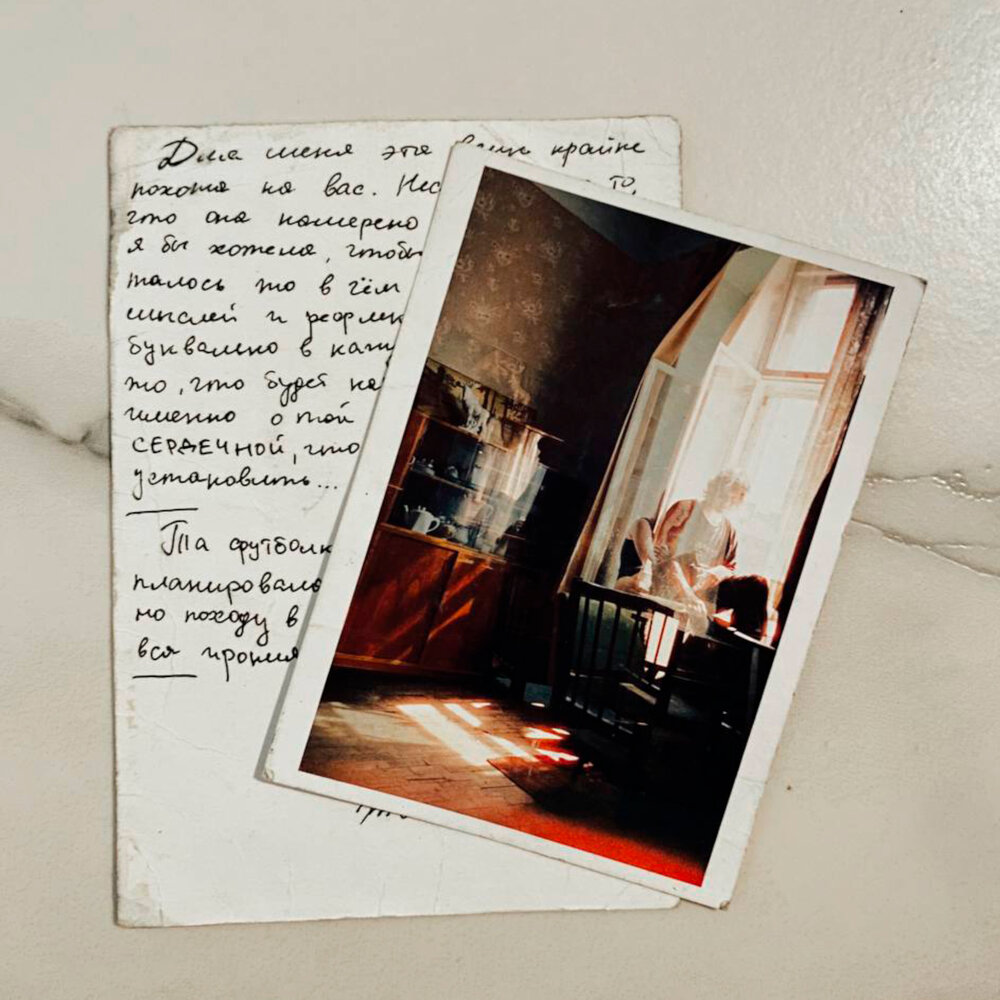 Для меня эта вещь крайне
похожа на вас. Нес то,
что она намерено
я бы хотела, чтобы
талось то в чём
мыслей и
буквально в
то, что будет на
именно о той
СЕРДЕЧНОЙ, что
установить...
Та футболк
планировала
но походу в
вся ирония